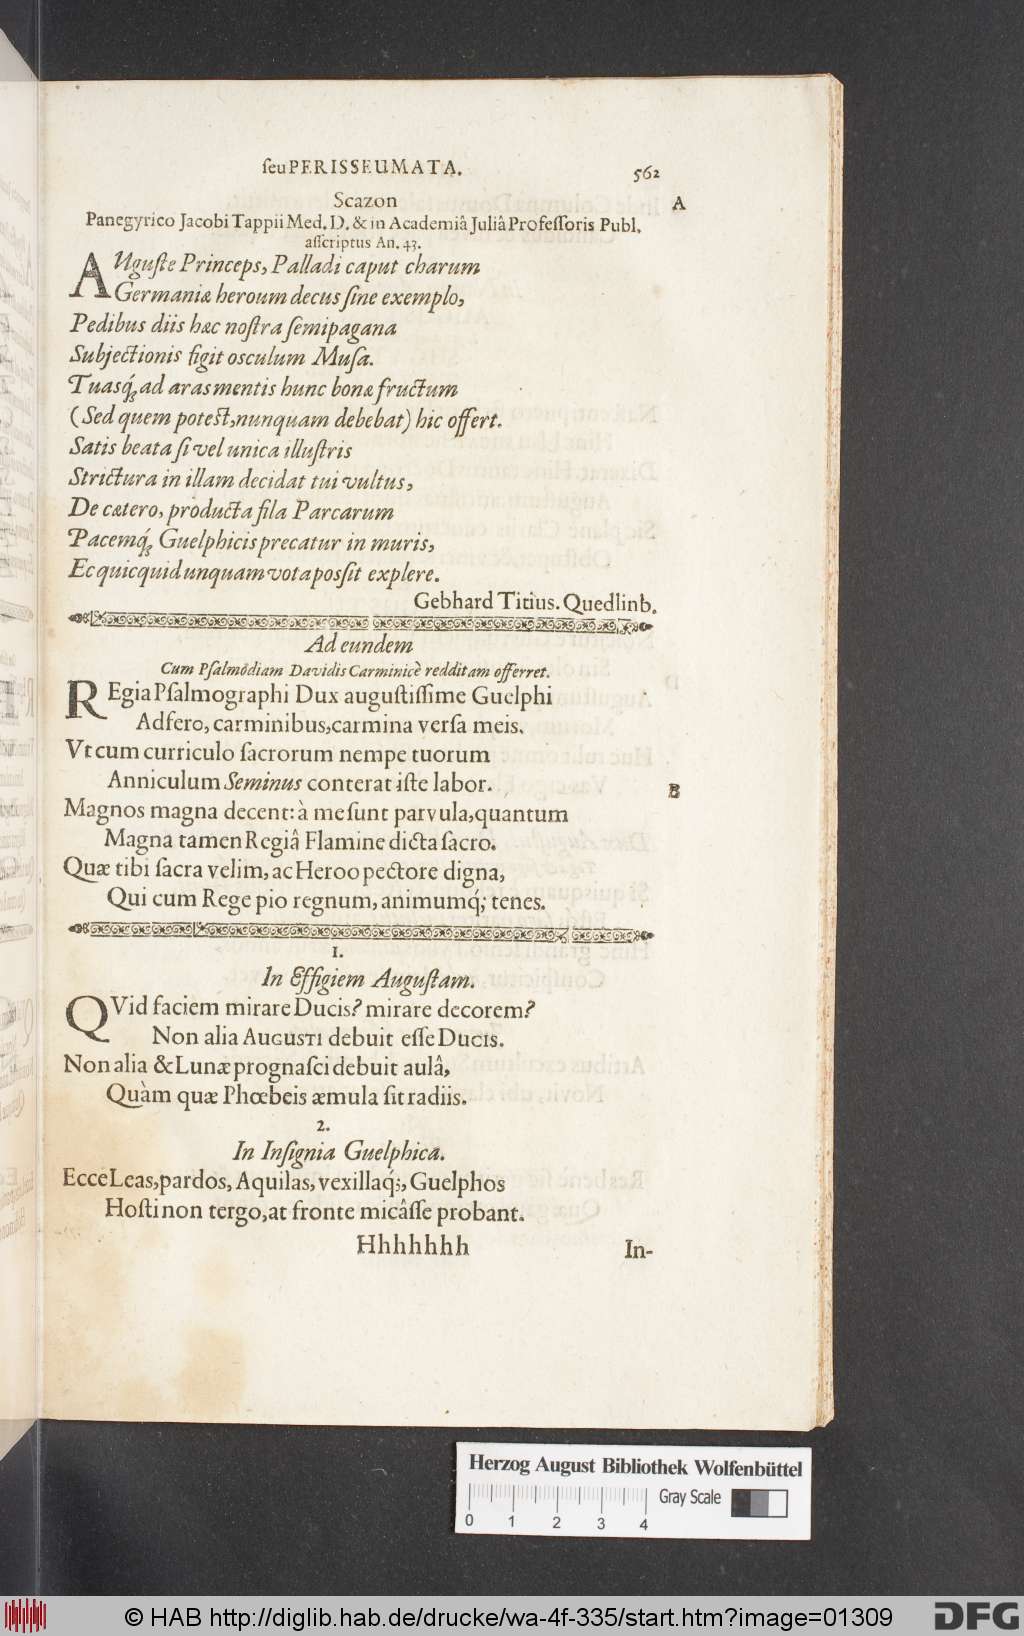 ſeu PERISSEUMATA. 562
Scazon A
Panegyrico Jacobi Tappii Med. D. & in Academiâ Juliâ Profeſſoris Publ.
aſſcriptus An. 43.
AUguſte Princeps, Palladi caput charum
Germaniæ heroum decus ſine exemplo,
Pedibus diis hæc noſtra ſemipagana
Subjectionis figit osculum Muſa.
Tuasq́; ad aras mentis hunc bonæ fructum
(Sed quem potest, nunquam debebat) hic offert.
Satis beata ſi vel unica illuſtris
Strictura in illam decidat tui vultus,
De cætero, producta fila Parcarum
Pacemq́; Guelphicis precatur in muris,
Ec quicquid unquam vota poſsit explere.
Gebhard Titius. Quedlinb.
Ad eundem
Cum Pſalmôdiam Davidis Carminicè redditam offerret.
REgia Pſalmographi Dux auguſtiſſime Guelphi
Adfero, carminibus, carmina verſa meis.
Vt cum curriculo ſacrorum nempe tuorum
Anniculum Seminus conterat iſte labor.
B
Magnos magna decent: à me ſunt parvula, quantum
Magna tamen Regiâ Flamine dicta ſacro.
Quæ tibi ſacra velim, ac Heroo pectore digna,
Qui cum Rege pio regnum, animumq́; tenes.
1.
In Effigiem Auguſtam.
QVid faciem mirare Ducis? mirare decorem?
Non alia AUGUSTI debuit eſſe DUCIS.
Non alia & Lunæ prognaſci debuit aulâ,
Quàm quæ Phœbeis æmula ſit radiis.
2.
In Inſignia Guelphica.
Ecce Leas, pardos, Aquilas, vexillaq́;, Guelphos
Hoſti non tergo, at fronte micâſſe probant.
Hhhhhhh In-
Herzog August Bibliothek Wolfenbüttel
Gray Scale
0 1 2 3 4
© HAB http://diglib.hab.de/drucke/wa-4f-335/start.htm?image=01309 DFG